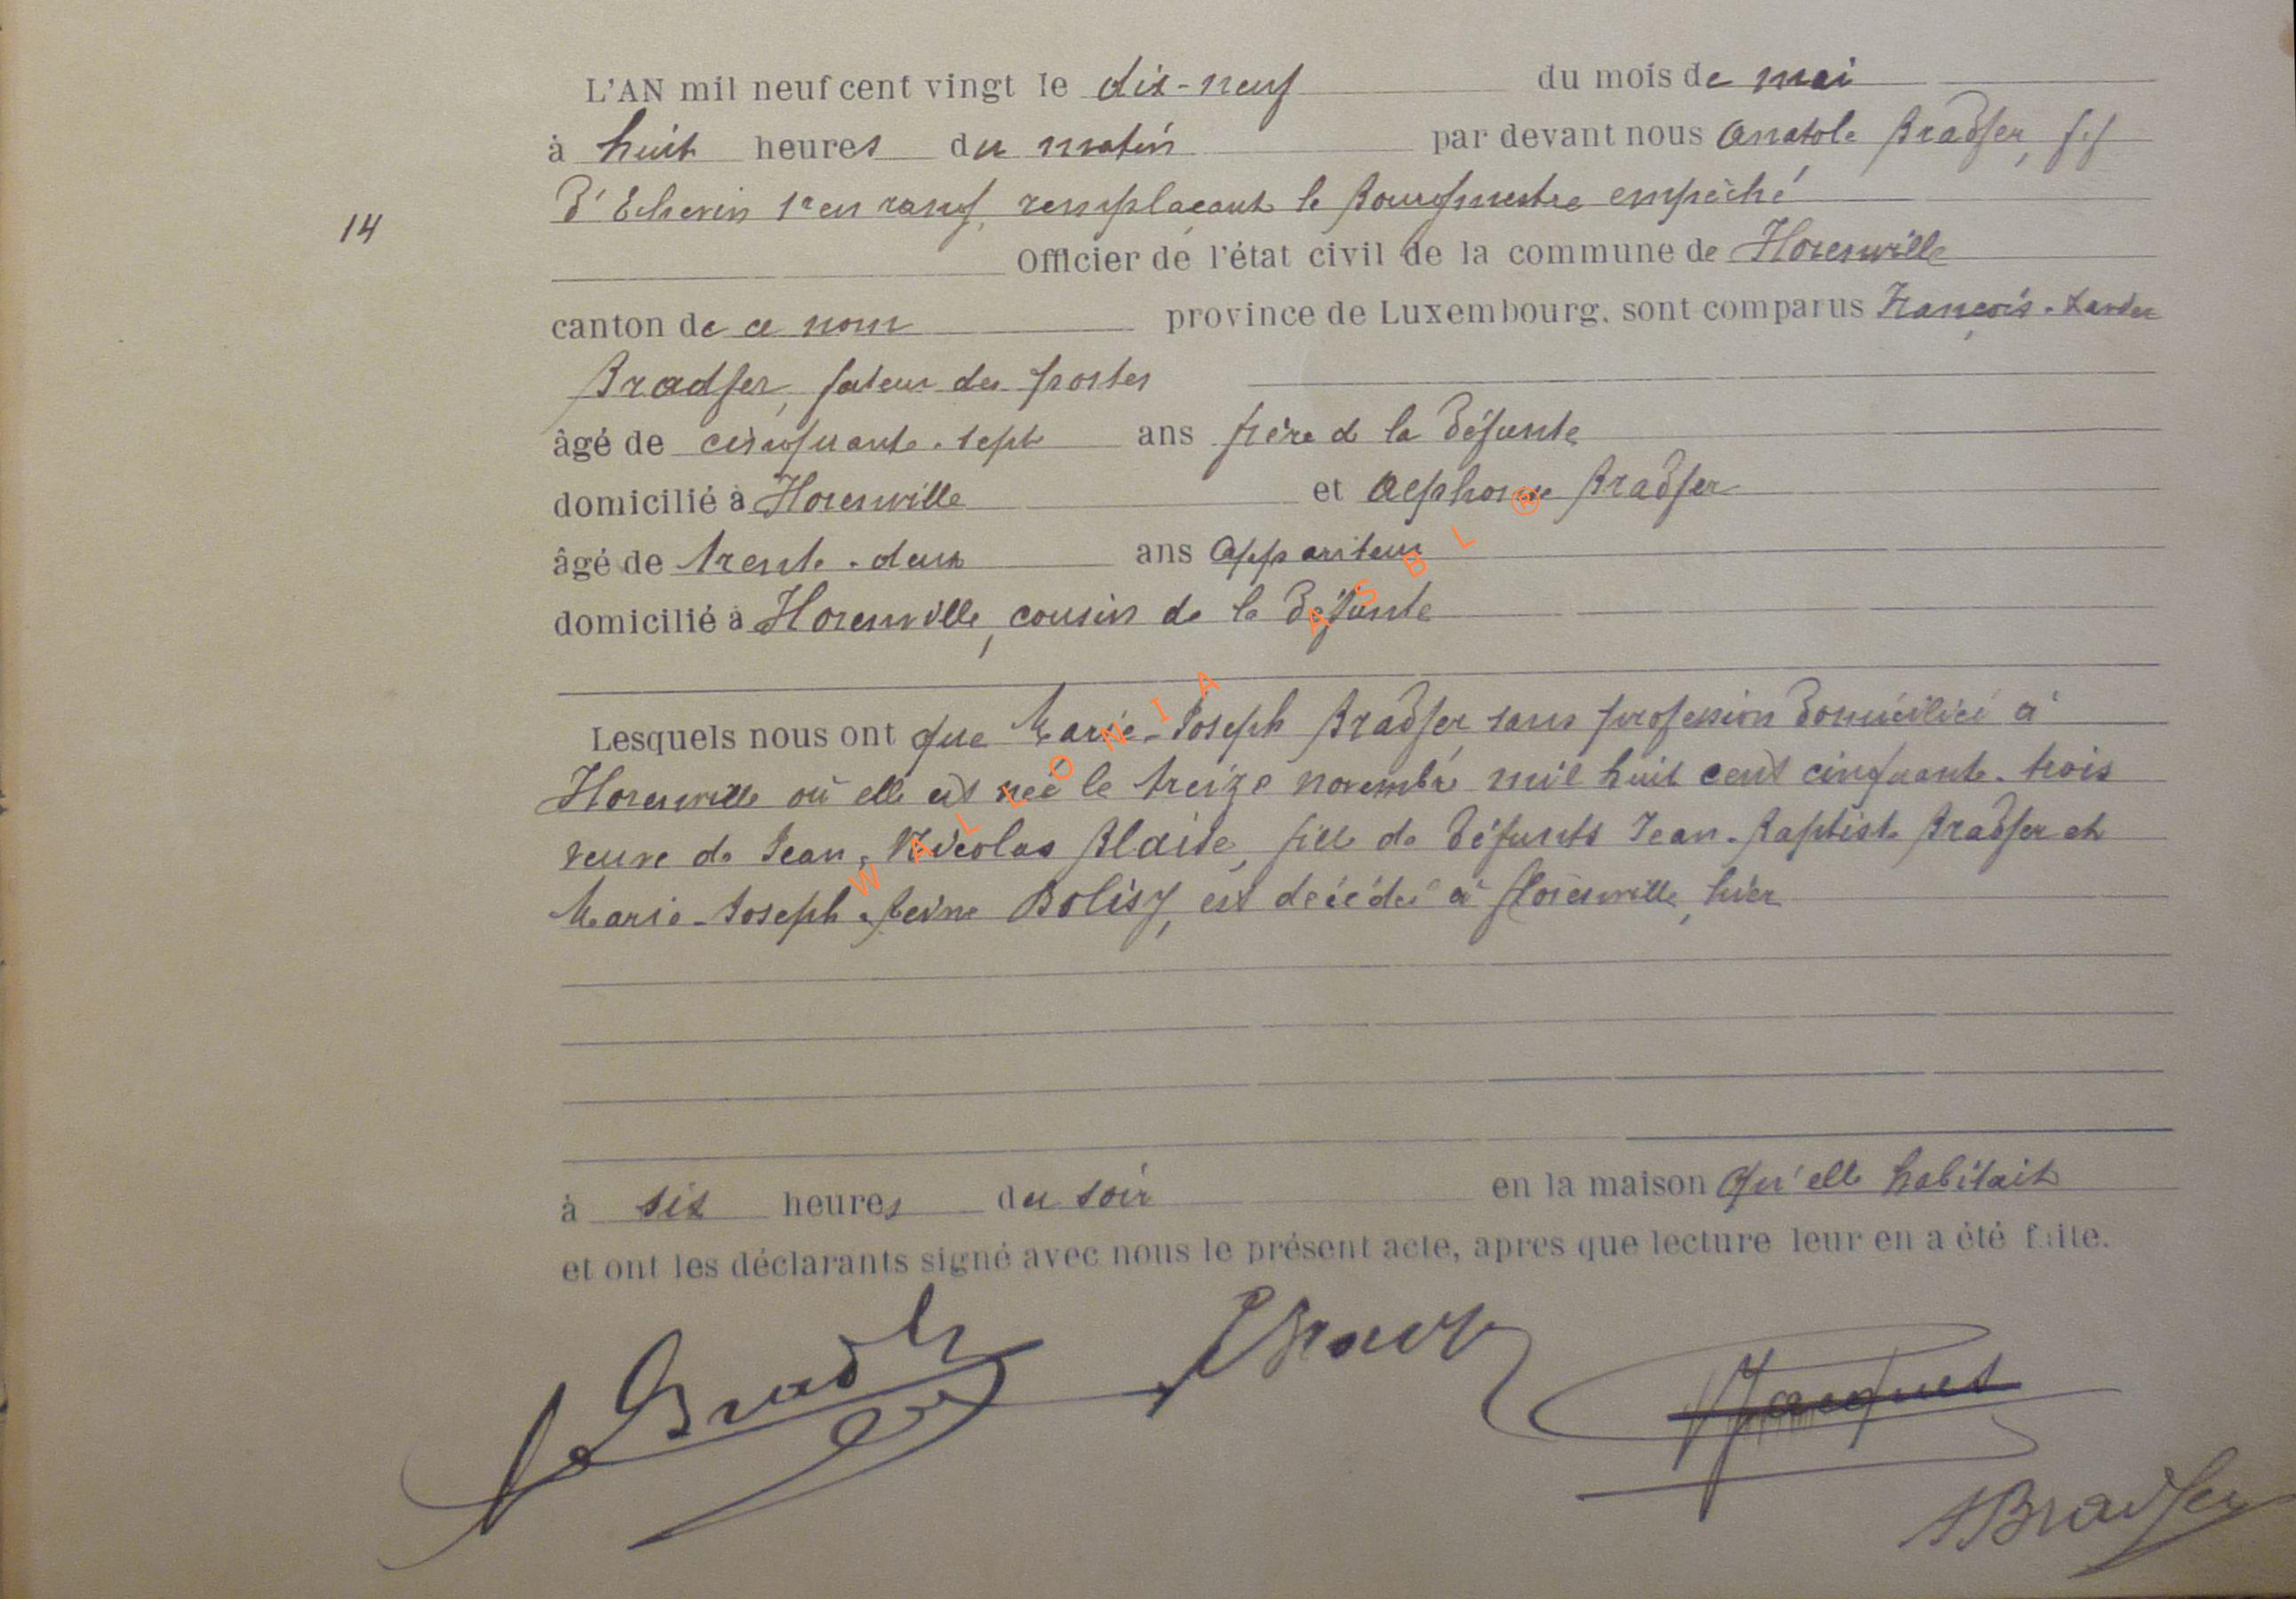 L'AN mil neuf cent vingt le dix-neuf du mois de mai
à huit heures du matin par devant nous Anatole Bradfer, f.f
d'Echevin 1er en rang, remplaçant le Bourgmestre empêché
14
Officier de l'état civil de la commune de Florenville
canton de ce nom province de Luxembourg. sont comparus François-Xavier
Bradfer, facteur des postes
âgé de cinquante-sept ans frère de la défunte
domicilié à Florenville et Alphonse Bradfer
âgé de trente-deux ans appariteur
domicilié à Florenville, cousin de la défunte
Lesquels nous ont que Marie-Joseph Bradfer sans profession domiciliée à
Florenville où elle est née le treize novembre mil huit cent cinquante-trois
veuve de Jean-Nicolas Blaise, fille de défunts Jean-Baptiste Bradfer et
Marie-Joseph-Reine Bolisy, est décédée à Florenville, hier
à six heures du soir en la maison qu'elle habitait
et ont les déclarants signé avec nous le présent acte, apres que lecture leur en a été faite.
Jacques
ABradfer
WALLONIA ASBL ®